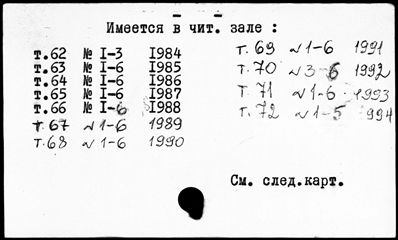 Имеется в чит. зале :
т.62 № I-3 I984
т.63 № I-6 I985
т.64 № I-6 I986
т.65 № I-6 I987
т.66 № I-6 I988
т.67 № 1-6 1989
т.68 № 1-6 1990
т. 69 № 1-6 1991
т. 70 № 3-6 1992
т. 71 № 1-6 1993
т. 72 № 1-5 1994
См. след.карт.